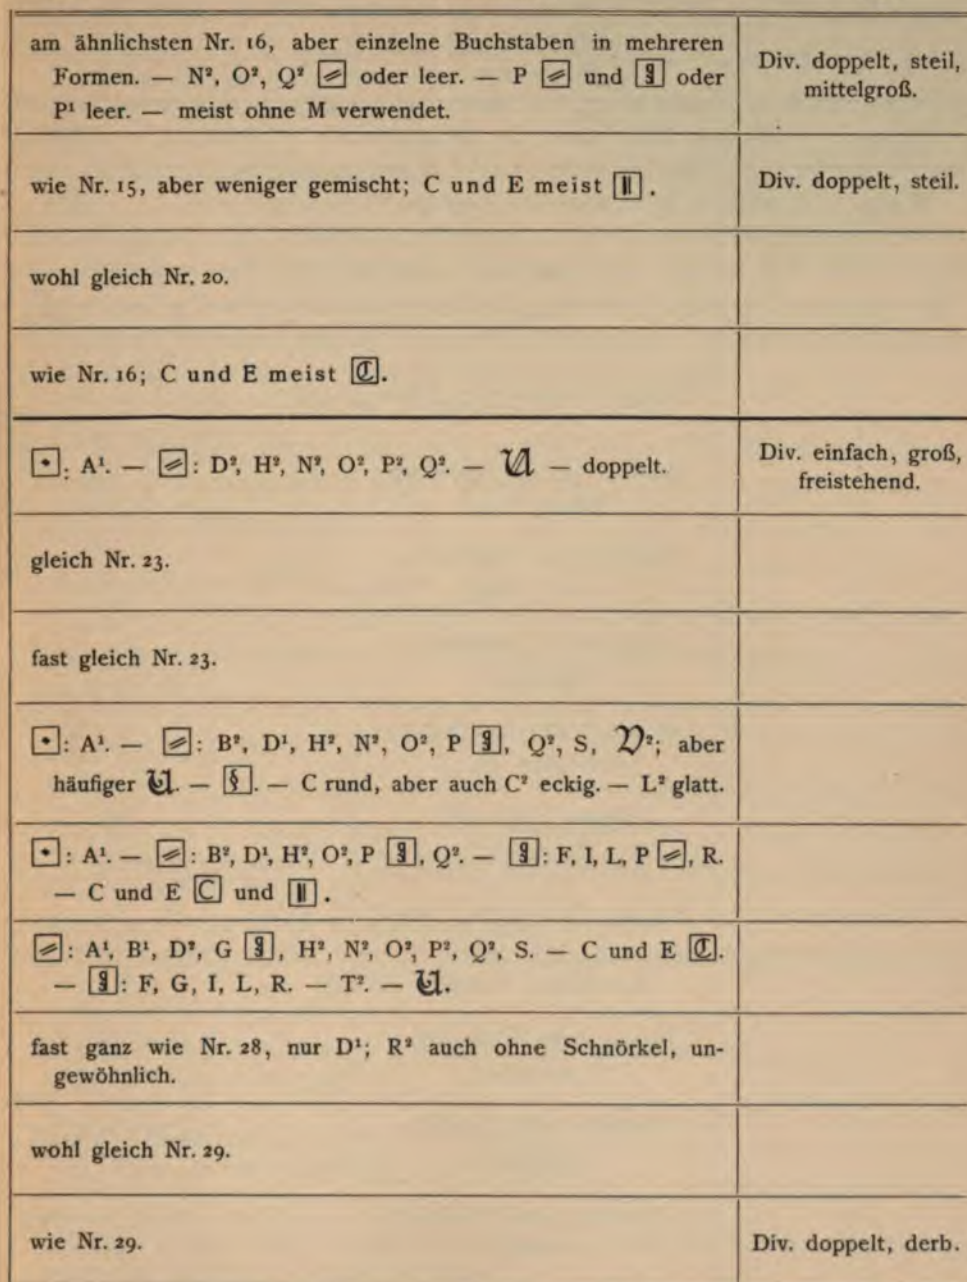 am ähnlichsten Nr. 16, aber einzelne Buchstaben in mehreren
Formen. — N², O², Q² oder leer. — P und oder
P¹ leer. — meist ohne M verwendet.
Div. doppelt, steil,
mittelgroß.
wie Nr. 15, aber weniger gemischt; C und E meist .
Div. doppelt, steil.
wohl gleich Nr. 20.
wie Nr. 16; C und E meist ℭ.
•: A¹. — : D², H², N², O², P², Q². — 𝔘 — doppelt.
Div. einfach, groß,
freistehend.
gleich Nr. 23.
fast gleich Nr. 23.
•: A¹. — : B², D¹, H², N², O², P , Q², S, 𝔙²; aber
häufiger 𝔘. — §. — C rund, aber auch C² eckig. — L² glatt.
•: A¹. — : B², D¹, H², O², P , Q². — : F, I, L, P , R.
— C und E C und .
: A¹, B¹, D², G , H², N², O², P², Q², S. — C und E ℭ.
— : F, G, I, L, R. — T². — 𝔘.
fast ganz wie Nr. 28, nur D¹; R² auch ohne Schnörkel, un-
gewöhnlich.
wohl gleich Nr. 29.
wie Nr. 29.
Div. doppelt, derb.